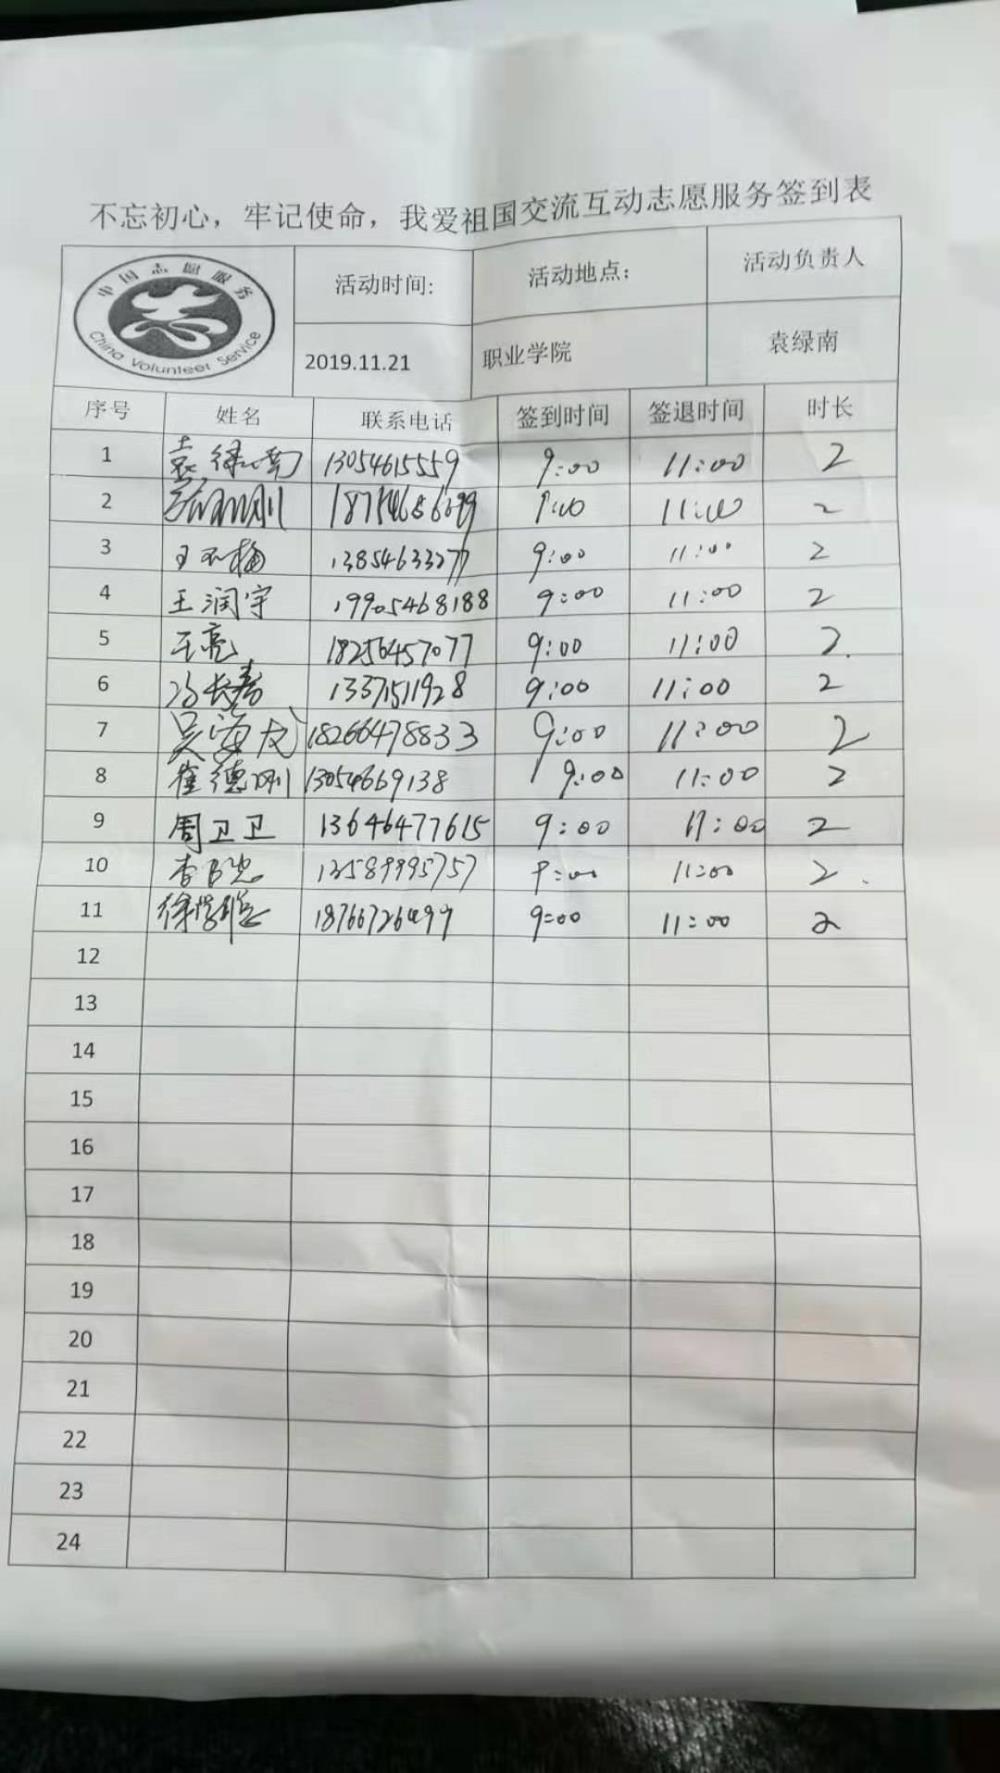 不忘初心，牢记使命，我爱祖国交流互动志愿服务签到表
中国志愿服务
China Volunteer Service
活动时间: 活动地点: 活动负责人
2019.11.21 职业学院 袁绿南
序号 姓名 联系电话 签到时间 签退时间 时长
1 袁绿南 13054615559 9:00 11:00 2
2 11:00 2
3 13854633277 9:00 11:00 2
4 王润宇 19905468188 9:00 11:00 2
5 王亮 18256457077 9:00 11:00 2
6 冯长春 13371511928 9:00 11:00 2
7 吴海龙 18266478833 9:00 11:00 2
8 崔德刚 13054669138 9:00 11:00 2
9 周卫卫 13646477615 9:00 11:00 2
10 13589995757 9:00 11:00 2
11 18766726499 9:00 11:00 2
12
13
14
15
16
17
18
19
20
21
22
23
24